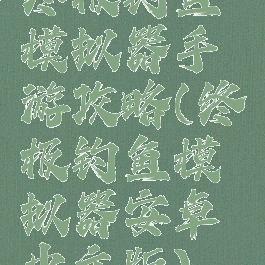 终极钓鱼
模拟器手
游攻略(终
极钓鱼模
拟器安卓
中文版)